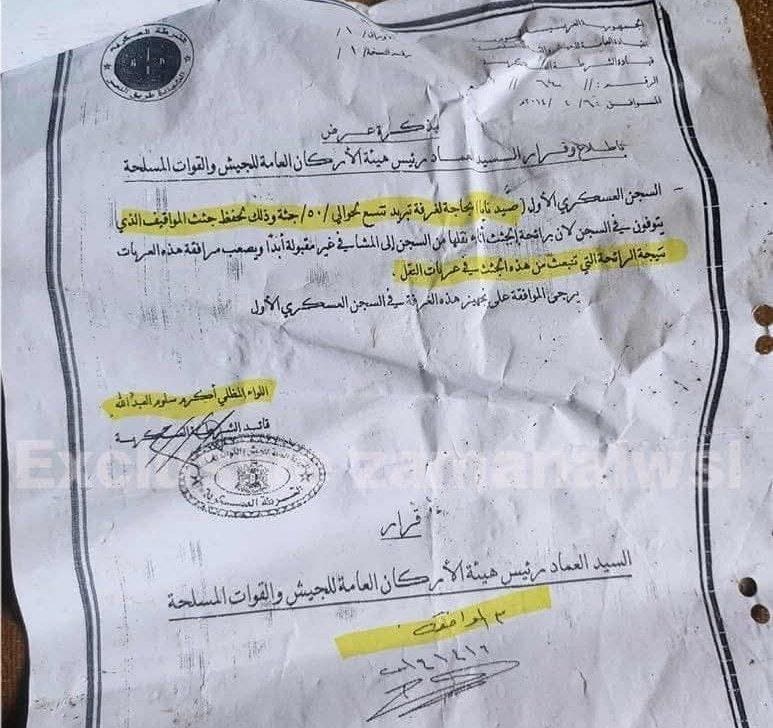 الجمهورية العربية السورية
القيادة العامة للجيش والقوات المسلحة
قيادة الشرطة العسكرية
الرقم: //
الموافق: ٦/٤/٢٠١٤م
رقم النسخة /١/
الشرطة العسكرية
مذكرة عرض
بإطلاع وقرار السيد العماد رئيس هيئة الأركان العامة للجيش والقوات المسلحة
- السجن العسكري الأول (صيدنايا) بحاجة لغرفة تبريد تتسع لحوالي /٥٠/ جثة وذلك لحفظ جثث المواقيف الذي
يتوفون في السجن لأن رائحة الجثث أثناء نقلها من السجن إلى المشافي غير مقبولة أبداً ويصعب مرافقة هذه العربات
نتيجة الرائحة التي تنبعث من هذه الجثث في عربات النقل .
يرجى الموافقة على تجهيز هذه الغرفة في السجن العسكري الأول
اللواء المظلي أكرم سلوم العبدالله
قائد الشرطة العسكرية
الشرطة العسكرية
Exclusive zamanalwsl
قرار
السيد العماد رئيس هيئة الأركان العامة للجيش والقوات المسلحة